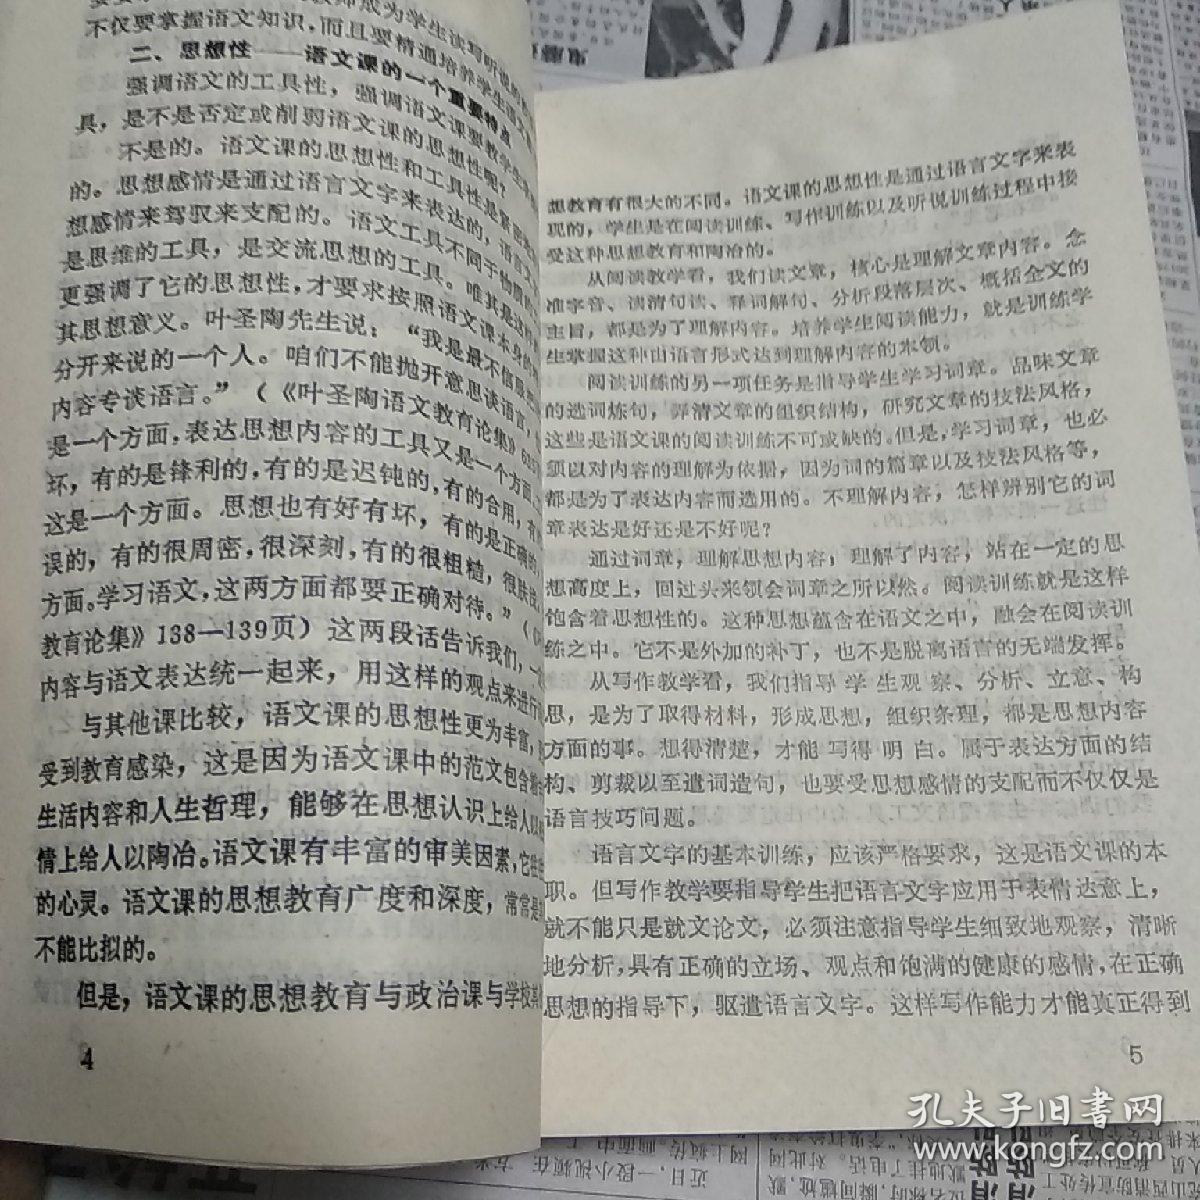 不仅要掌握语文知识，而且要精通培养学生
二、思想性——语文课的一个重要特点
强调语文的工具性，强调语文课要教学生
具，是不是否定或削弱语文课的思想性呢？
不是的。语文课的思想性和工具性是
的。思想感情是通过语言文字来表达的，语言文
想感情来驾驭来支配的。语文工具不同于物质的
是思维的工具，是交流思想的工具。唯其是这样
更强调了它的思想性，才要求按照语文课本身的
其思想意义。叶圣陶先生说：“我是最不信服
分开来说的一个人。咱们不能抛开意思谈语言，
内容专谈语言。”（《叶圣陶语文教育论集》
是一个方面，表达思想内容的工具又是一个方面，
坏，有的是锋利的，有的是迟钝的，有的合用，有
这是一个方面。思想也有好有坏，有的是正确的，
误的，有的很周密，很深刻，有的很粗糙，很肤
方面。学习语文，这两方面都要正确对待。”（
教育论集》138—139页）这两段话告诉我们，一
内容与语文表达统一起来，用这样的观点来进行
与其他课比较，语文课的思想性更为丰富，
受到教育感染，这是因为语文课中的范文包含着
生活内容和人生哲理，能够在思想认识上给人以
情上给人以陶冶。语文课有丰富的审美因素，它
的心灵。语文课的思想教育广度和深度，常常是
不能比拟的。
但是，语文课的思想教育与政治课与学校
4
想教育有很大的不同。语文课的思想性是通过语言文字来表
现的，学生是在阅读训练、写作训练以及听说训练过程中接
受这种思想教育和陶冶的。
从阅读教学看，我们读文章，核心是理解文章内容。念
准字音、读清句读、释词解句、分析段落层次、概括全文的
主旨，都是为了理解内容。培养学生阅读能力，就是训练学
生掌握这种由语言形式达到理解内容的本领。
阅读训练的另一项任务是指导学生学习词章。品味文章
的选词炼句，弄清文章的组织结构，研究文章的技法风格，
这些是语文课的阅读训练不可或缺的。但是，学习词章，也必
须以对内容的理解为依据，因为词的篇章以及技法风格等，
都是为了表达内容而选用的。不理解内容，怎样辨别它的词
章表达是好还是不好呢？
通过词章，理解思想内容，理解了内容，站在一定的思
想高度上，回过头来领会词章之所以然。阅读训练就是这样
饱含着思想性的。这种思想蕴含在语文之中，融会在阅读训
练之中。它不是外加的补丁，也不是脱离语言的无端发挥。
从写作教学看，我们指导学生观察、分析、立意、构
思，是为了取得材料，形成思想，组织条理，都是思想内容
方面的事。想得清楚，才能写得明白。属于表达方面的结
构、剪裁以至遣词造句，也要受思想感情的支配而不仅仅是
语言技巧问题。
语言文字的基本训练，应该严格要求，这是语文课的本
职。但写作教学要指导学生把语言文字应用于表情达意上，
就不能只是就文论文，必须注意指导学生细致地观察，清晰
地分析，具有正确的立场、观点和饱满的健康的感情，在正确
思想的指导下，驱遣语言文字。这样写作能力才能真正得到
5
孔夫子旧书网
www.kongfz.com